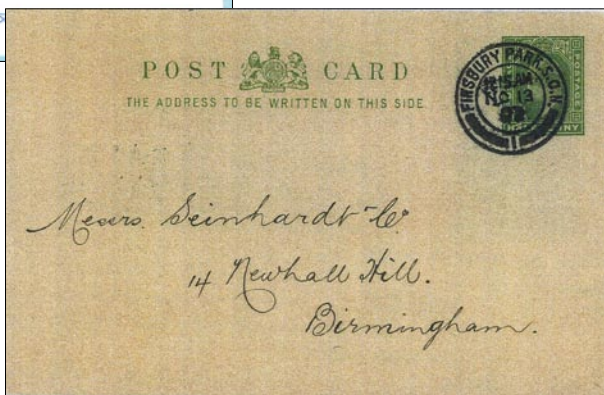 POST CARD
THE ADDRESS TO BE WRITTEN ON THIS SIDE
FINSBURY PARK.S.O.N.
12.15 AM
NO 13
11
POSTAGE
Messrs. Seinhardt & Co
14 Newhall Hill.
Birmingham.